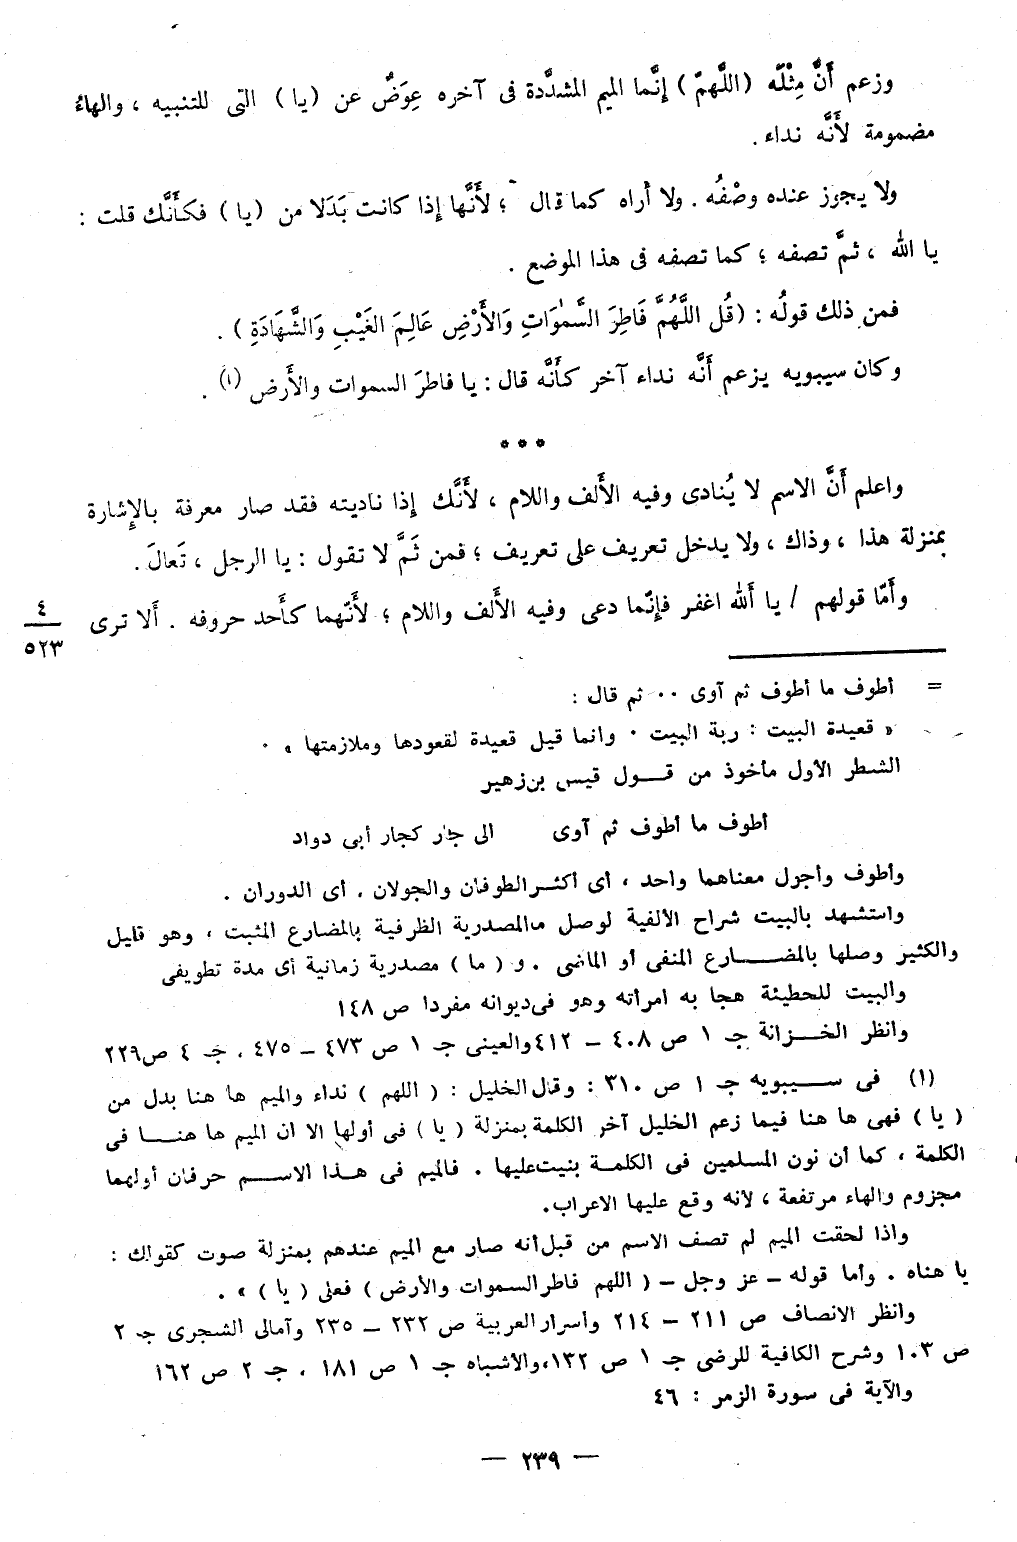 وزعم أَنَّ مِثْلَه (اللَّهمّ) إِنَّما الميم المشدَّدة فى آخره عِوَضٌ عن (يا) التى للتنبيه ، والهاءُ
مضمومة لأَنَّه نداء .
ولا يجوز عنده وصْفُه . ولا أراه كما قال ؛ لأَنَّها إذا كانت بَدَلا من (يا) فكأَنَّك قلت :
يا الله ، ثمَّ تصفه ؛ كما تصفه فى هذا الموضع .
فمن ذلك قولُه : (قُل اللَّهُمَّ فَاطِرَ السَّمٰوَاتِ وَالأَرْضِ عَالِمَ الغَيْبِ وَالشَّهَادَةِ) .
وكان سيبويه يزعم أَنَّه نداء آخر كأَنَّه قال : يا فاطرَ السموات والأَرض (١) .
* * *
واعلم أَنَّ الاسم لا يُنادى وفيه الأَلف واللام ، لأَنَّك إذا ناديته فقد صار معرفة بالإِشارة
بمنزلة هذا ، وذاك ، ولا يدخل تعريف على تعريف ؛ فمن ثَمَّ لا تقول : يا الرجل ، تَعالَ .
وأَمّا قولهم / يا أَلله اغفر فإِنّما دعى وفيه الأَلف واللام ؛ لأَنّهما كأَحد حروفه . أَلا ترى
٤
٥٢٣
= أطوف ما أطوف ثم آوى ٠٠ ثم قال :
« قعيدة البيت : ربة البيت ٠ وانما قيل قعيدة لقعودها وملازمتها » ٠
الشطر الأول مأخوذ من قول قيس بن زهير
أطوف ما أطوف ثم آوى الى جار كجار أبى دواد
وأطوف وأجول معناهما واحد ، أى أكثر الطوفان والجولان . أى الدوران .
واستشهد بالبيت شراح الألفية لوصل ما المصدرية الظرفية بالمضارع المثبت ، وهو قليل
والكثير وصلها بالمضارع المنفى أو الماضى . و (ما) مصدرية زمانية أى مدة تطويفى
والبيت للحطيئة هجا به امرأته وهو فى ديوانه مفردا ص ١٤٨
وانظر الخزانة جـ ١ ص ٤٠٨ – ٤١٢ والعينى جـ ١ ص ٤٧٣ – ٤٧٥ ، جـ ٤ ص ٢٢٩
(١) فى سيبويه جـ ١ ص ٣١٠ : وقال الخليل : (اللهم) نداء والميم ها هنا بدل من
(يا) فهى ها هنا فيما زعم الخليل آخر الكلمة بمنزلة (يا) فى أولها الا ان الميم ها هنا فى
الكلمة ، كما أن نون المسلمين فى الكلمة بنيت عليها . فالميم فى هذا الاسم حرفان أولهما
مجزوم والهاء مرتفعة ، لأنه وقع عليها الاعراب .
واذا لحقت الميم لم تصف الاسم من قبل أنه صار مع الميم عندهم بمنزلة صوت كقولك :
يا هناه . وأما قوله – عز وجل – (اللهم فاطر السموات والأرض) فعلى (يا) » .
وانظر الانصاف ص ٢١١ – ٢١٤ وأسرار العربية ص ٢٣٢ – ٢٣٥ وآمالى الشجرى جـ ٢
ص ١٠٣ وشرح الكافية للرضى جـ ١ ص ١٣٢، والاشباه جـ ١ ص ١٨١ ، جـ ٢ ص ١٦٢
والآية فى سورة الزمر : ٤٦
— ٢٣٩ —